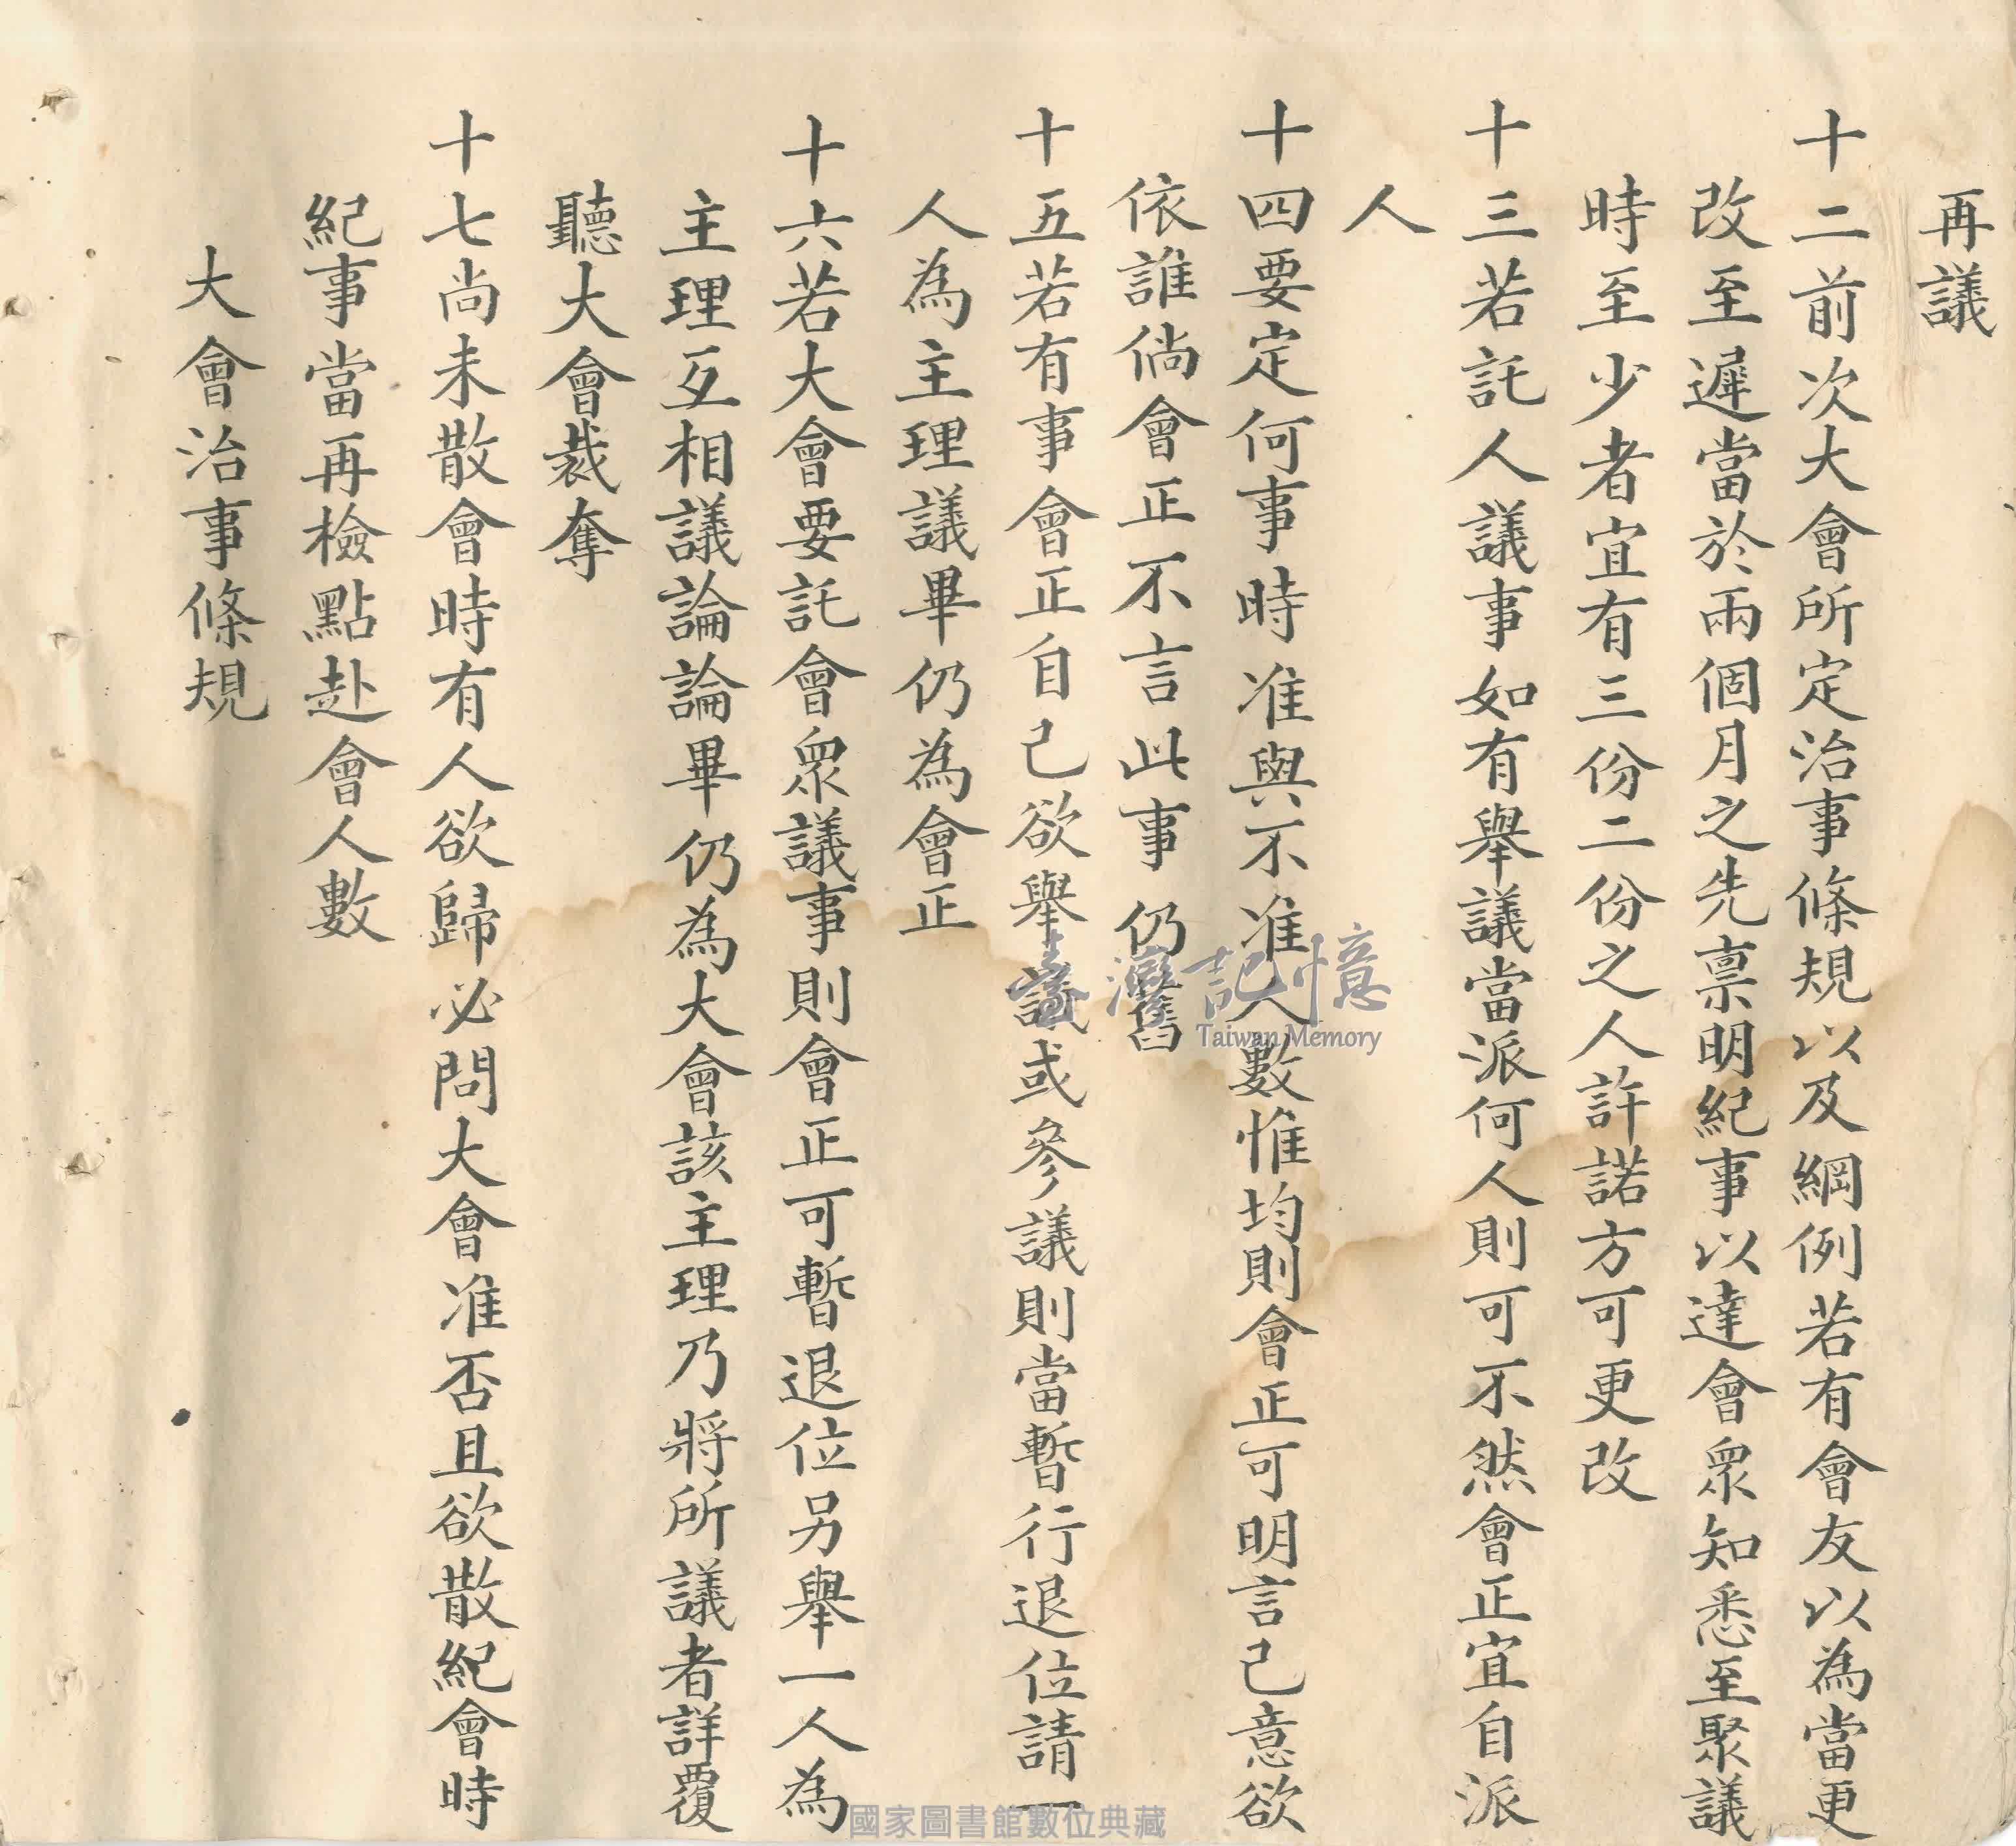 再議
十二前次大會所定治事條規以及綱例若有會友以為當更
改至遲當於兩個月之先稟明紀事以達會眾知悉至聚議
時至少者宜有三份二份之人許諾方可更改
十三若託人議事如有舉議當派何人則可不然會正宜自派
人
十四要定何事時准與不准人數惟均則會正可明言己意欲
依誰倘會正不言此事仍舊
十五若有事會正自己欲舉議或參議則當暫行退位請一
人為主理議畢仍為會正
十六若大會要託會眾議事則會正可暫退位另舉一人為
主理互相議論論畢仍為大會該主理乃將所議者詳覆
聽大會裁奪
十七尚未散會時有人欲歸必問大會准否且欲散紀會時
紀事當再檢點赴會人數
大會治事條規
臺灣記憶
Taiwan Memory
國家圖書館數位典藏